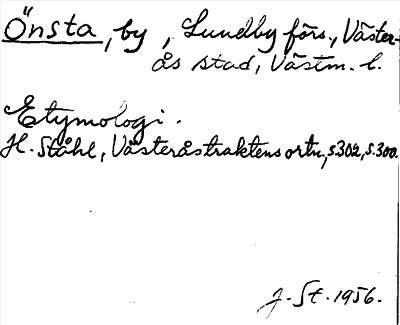 Önsta, by, Lundby förs., Väster-
ås stad, Västm. l.
Etymologi.
H. Ståhl, Västeråstraktens ortn, s.302, s.300.
J. St. 1956.